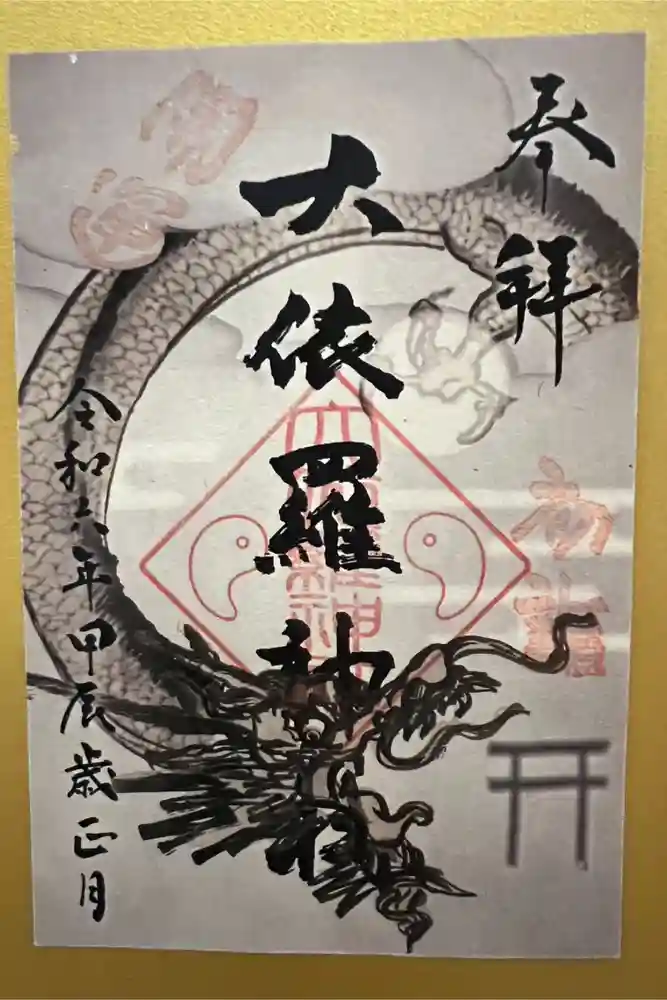 奉拝
大依羅神社
初詣
令和六年甲辰歳正月